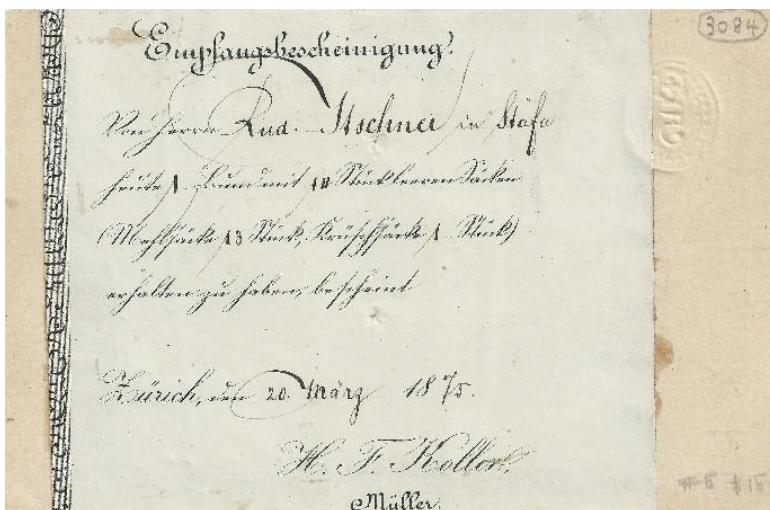 3084
Empfangsbescheinigung.
Von Herrn Rud. Itschner in Stäfa
heute 1 Bund mit 14 Stück leeren Säcken
(Mehlsäcke 13 Stück, Krüschsäcke 1 Stück)
erhalten zu haben, bescheint
Zürich, den 20. März 1875.
H. F. Koller.
Müller.
$15